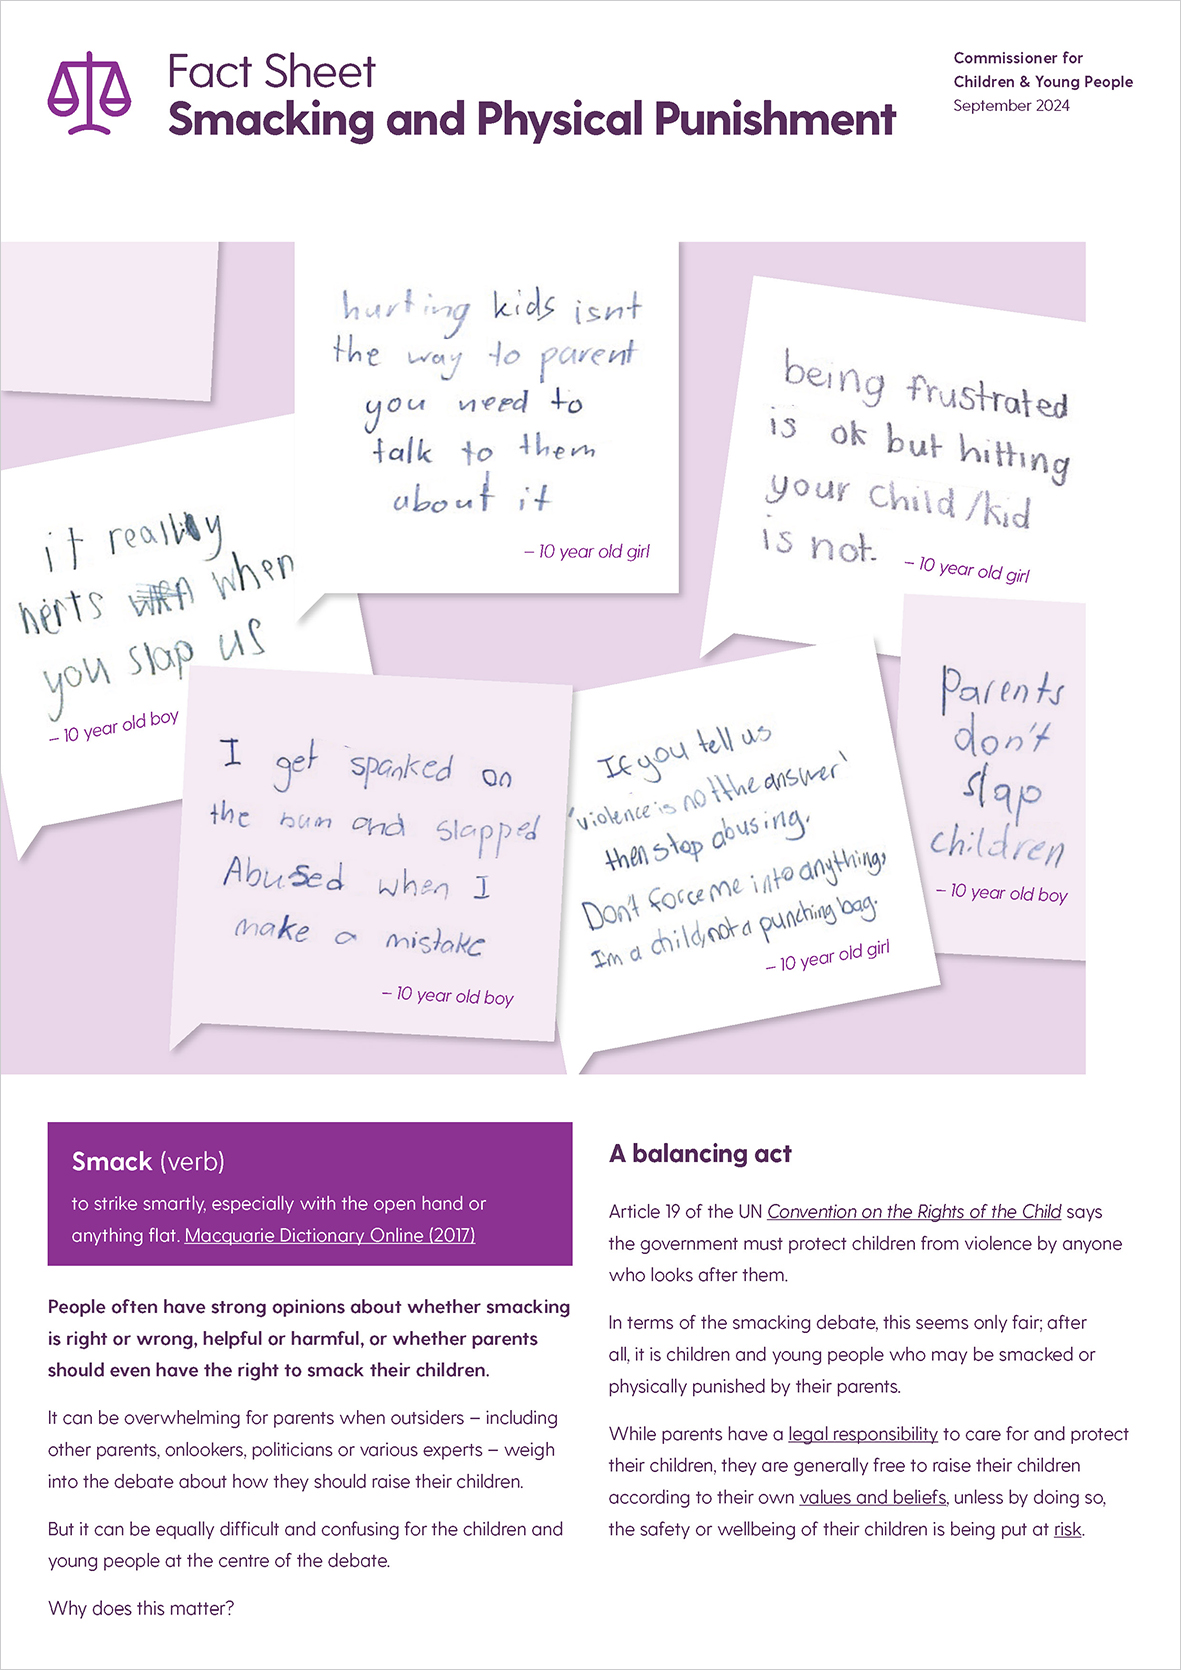 Fact Sheet
Smacking and Physical Punishment
Commissioner for
Children & Young People
September 2024
hurting kids isnt
the way to parent
you need to
talk to them
about it
– 10 year old girl
being frustrated
is ok but hitting
your child/kid
is not.
– 10 year old girl
it really
herts when
you slap us
– 10 year old boy
I get spanked on
the bum and slapped
Abused when I
make a mistake
– 10 year old boy
If you tell us
'violence is not the answer'
then stop abusing.
Don't force me into anything,
I'm a child, not a punching bag.
– 10 year old girl
Parents
don't
slap
children
– 10 year old boy
Smack (verb)
to strike smartly, especially with the open hand or
anything flat. Macquarie Dictionary Online (2017)
People often have strong opinions about whether smacking
is right or wrong, helpful or harmful, or whether parents
should even have the right to smack their children.
It can be overwhelming for parents when outsiders – including
other parents, onlookers, politicians or various experts – weigh
into the debate about how they should raise their children.
But it can be equally difficult and confusing for the children and
young people at the centre of the debate.
Why does this matter?
A balancing act
Article 19 of the UN Convention on the Rights of the Child says
the government must protect children from violence by anyone
who looks after them.
In terms of the smacking debate, this seems only fair; after
all, it is children and young people who may be smacked or
physically punished by their parents.
While parents have a legal responsibility to care for and protect
their children, they are generally free to raise their children
according to their own values and beliefs, unless by doing so,
the safety or wellbeing of their children is being put at risk.